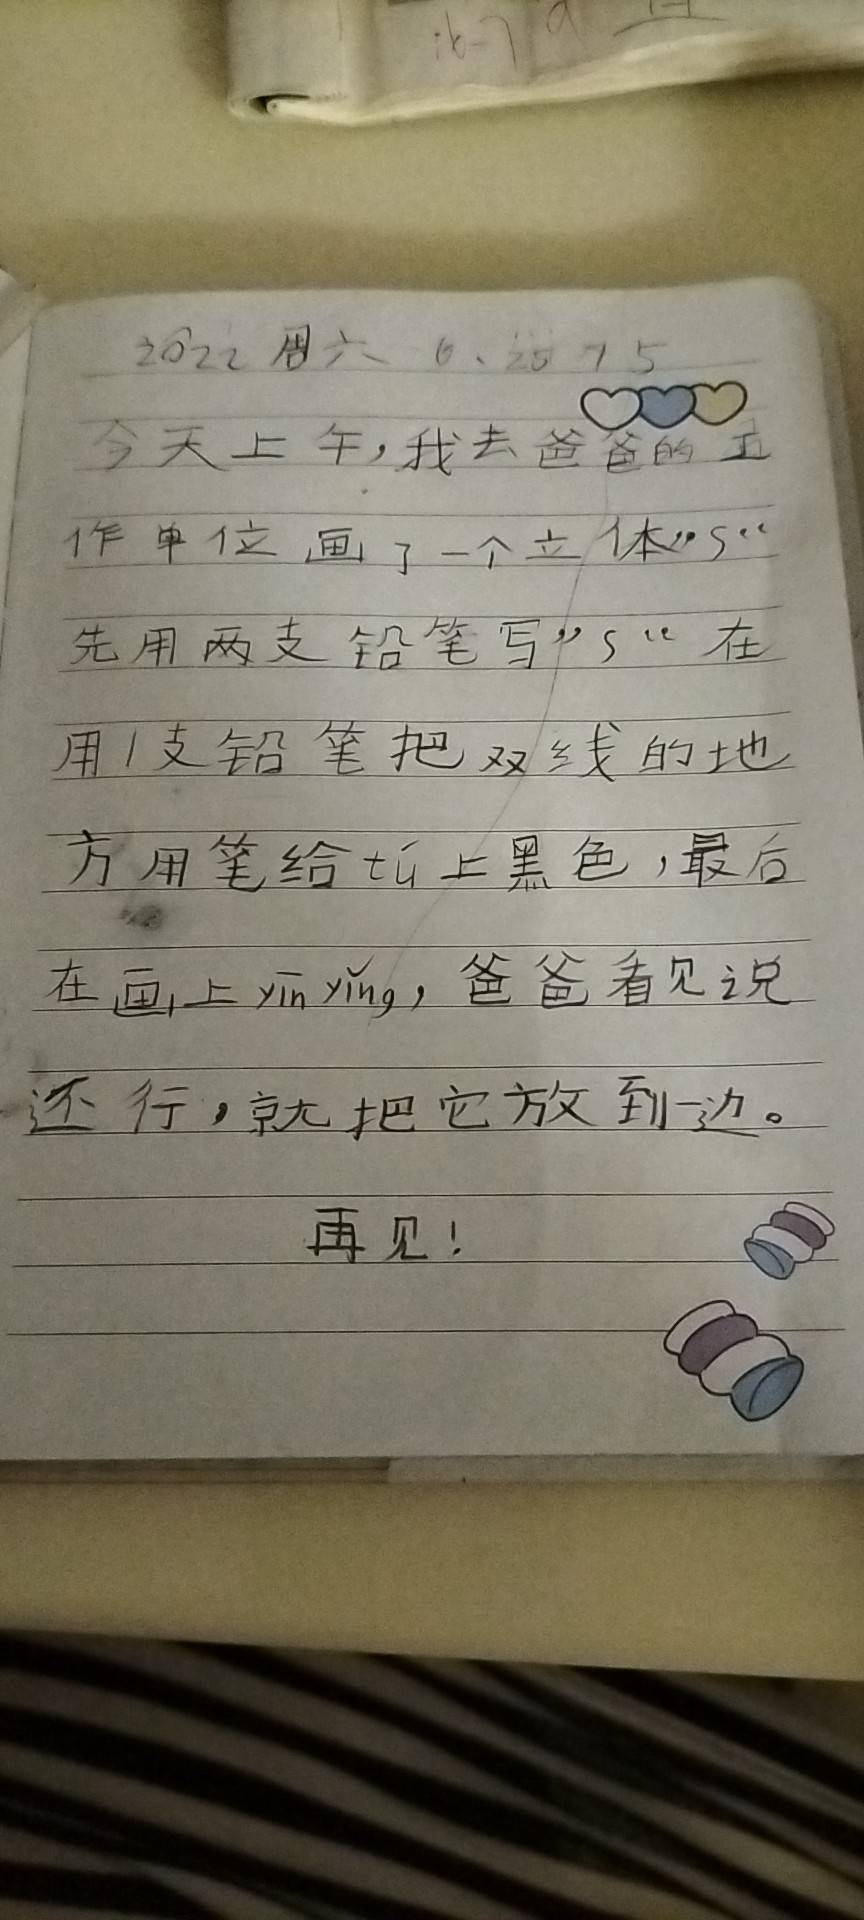 2022 周六 6、25 75
今天上午,我去爸爸的工
作单位画了一个立体”S“
先用两支铅笔写”S“在
用1支铅笔把双线的地
方用笔给tú上黑色,最后
在画上yīn yǐng,爸爸看见说
还行,就把它放到一边。
再见!